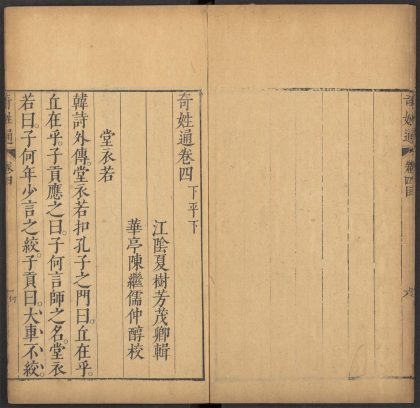 奇姓通
卷四目
六
奇姓通卷四 下平下
江陰夏樹芳茂卿輯
華亭陳繼儒仲醇校
堂衣若
韓詩外傳。堂衣若扣孔子之門曰。丘在乎。
丘在乎。子貢應之曰。子何言師之名。堂衣
若曰。子何年少言之絞。子貢曰。大車不絞。
奇姓通
卷四
一